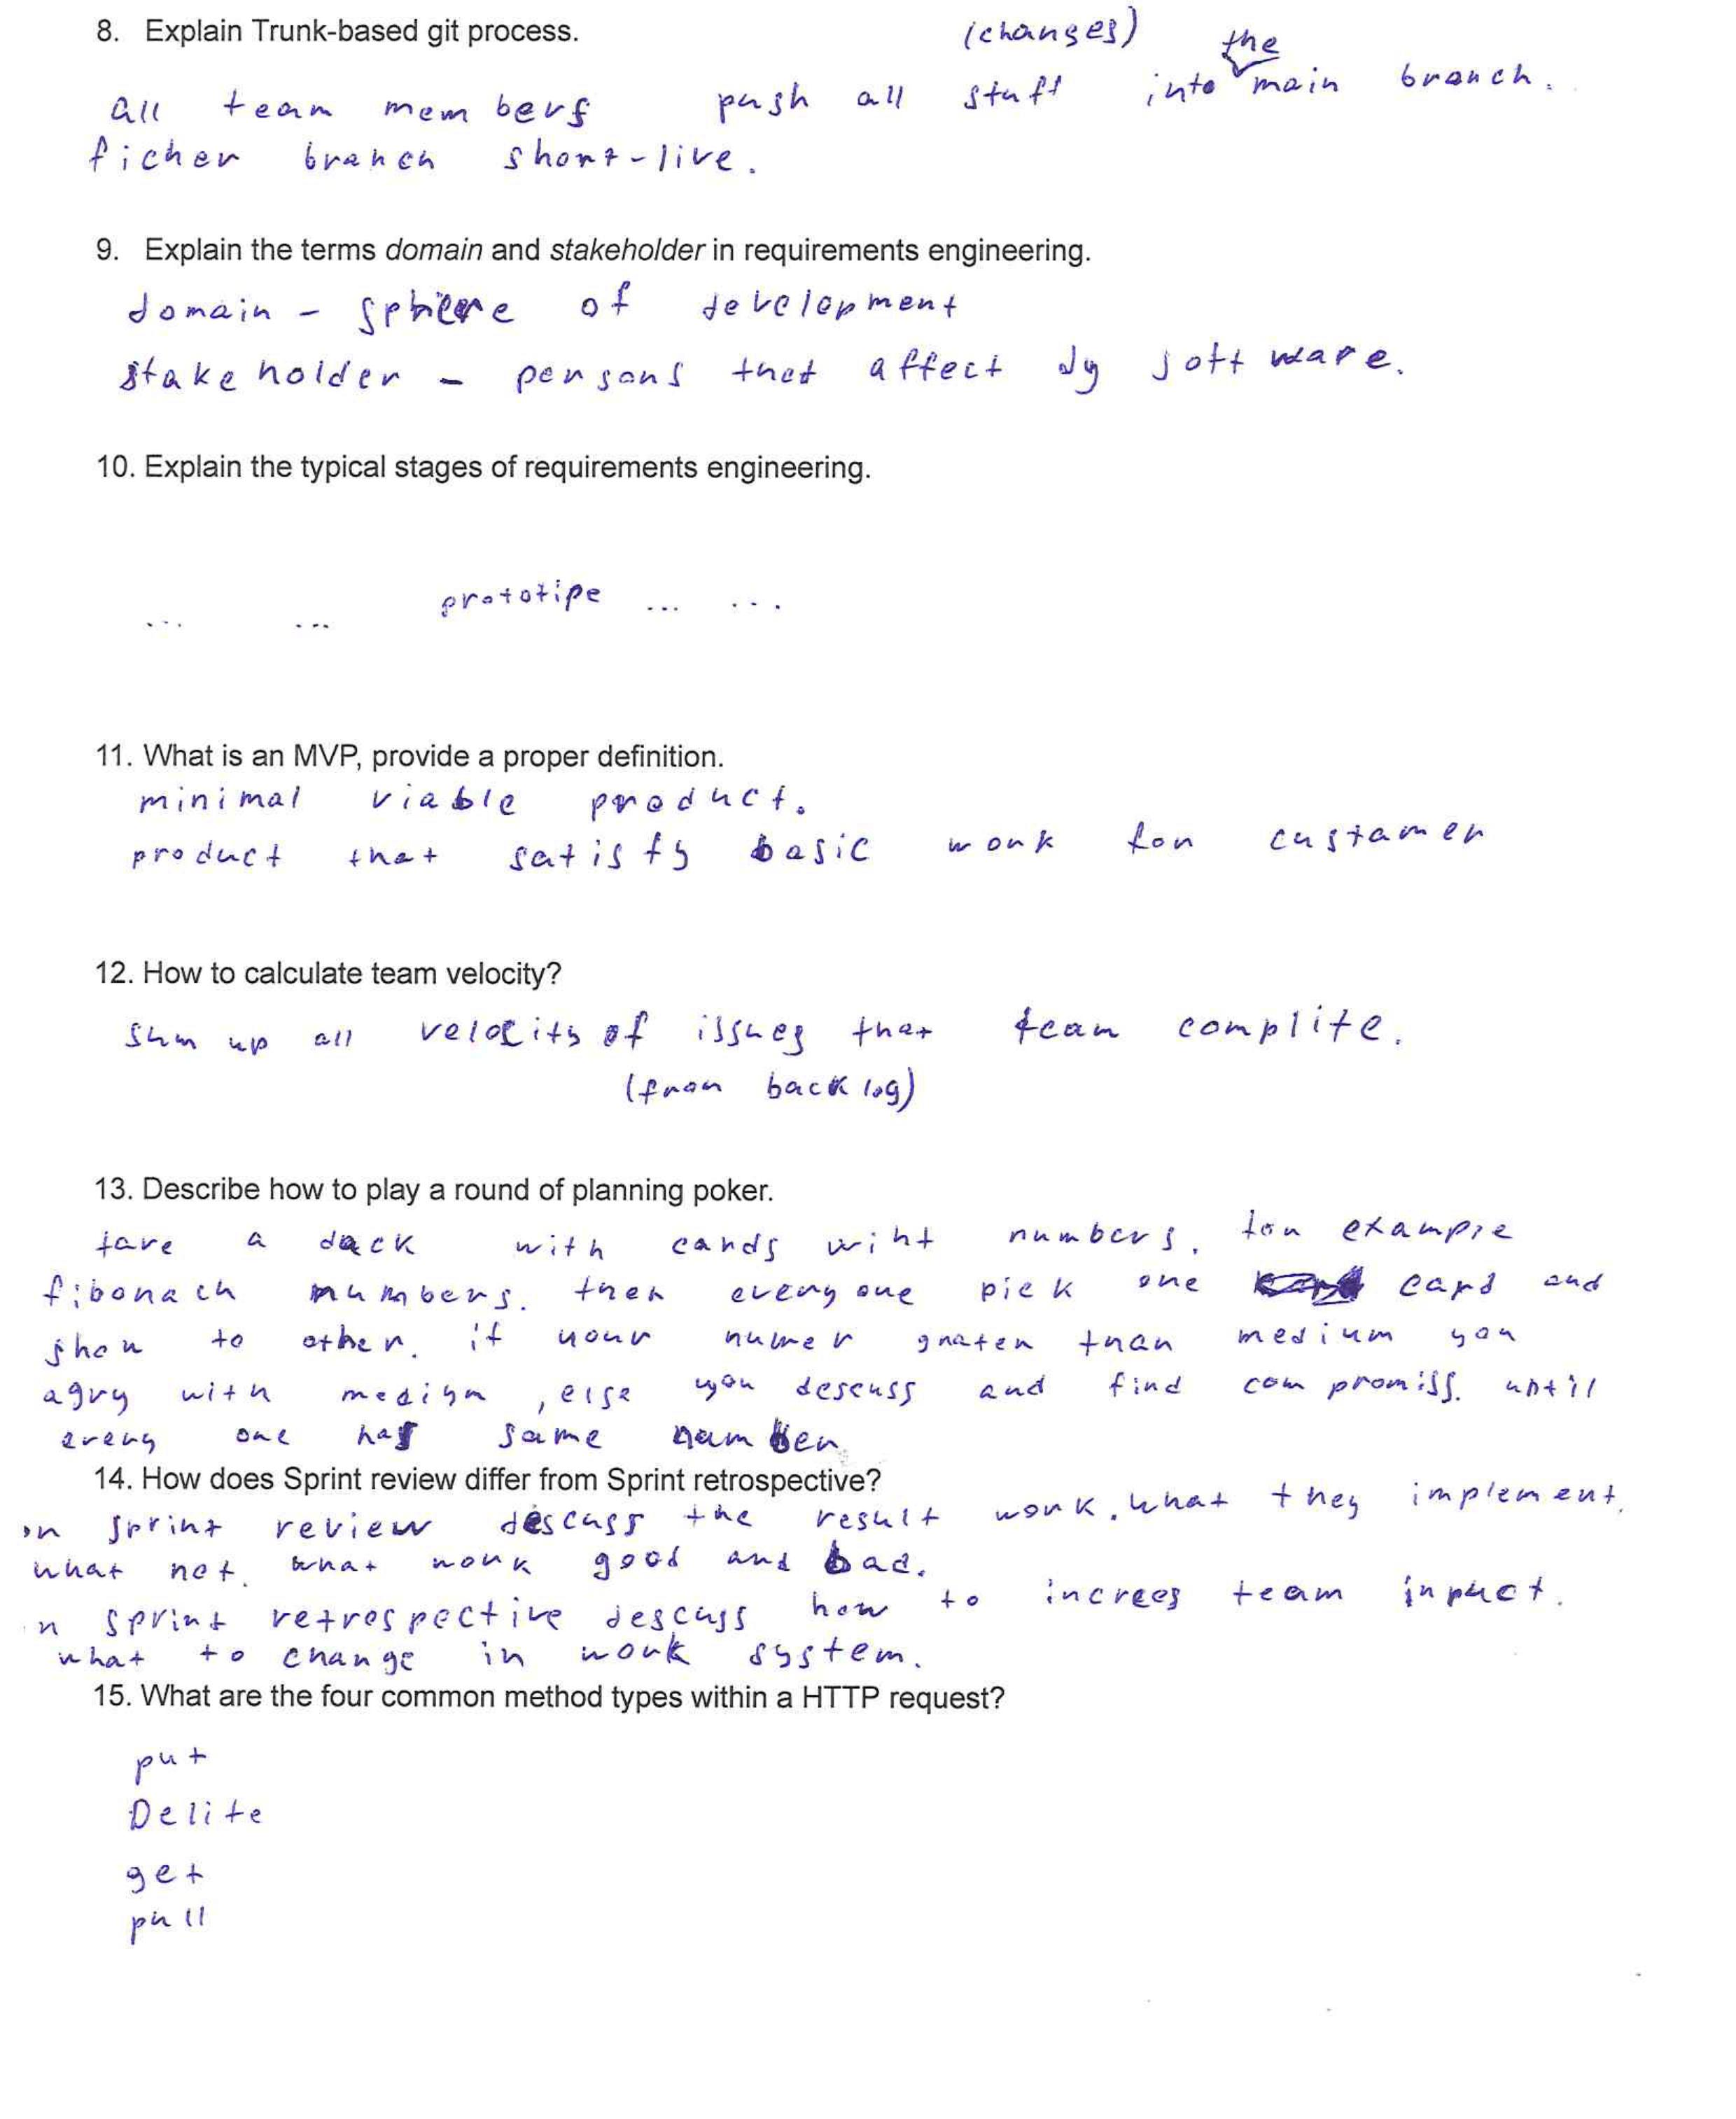 8. Explain Trunk-based git process.
(changes) the
all team members push all stuff into main branch.
ficher branch short-live.
9. Explain the terms domain and stakeholder in requirements engineering.
domain - sphere of development
stake holder - persons that affect by software.
10. Explain the typical stages of requirements engineering.
... ... prototipe ... ...
11. What is an MVP, provide a proper definition.
minimal viable product.
product that satisfy basic work for custamer
12. How to calculate team velocity?
sum up all velocity of issues that team complite.
(from backlog)
13. Describe how to play a round of planning poker.
take a dack with cards wiht numbers. for example
fibonach numbers. then every one pick one card and
show to other. if your numer graten than medium you
agry with medium, else you descuss and find compromiss. until
every one has same number
14. How does Sprint review differ from Sprint retrospective?
on sprint review descuss the result work. what they implement.
what not. what work good and bad.
n sprint retrospective descuss how to increes team inpact.
what to change in work system.
15. What are the four common method types within a HTTP request?
put
Delite
get
pull